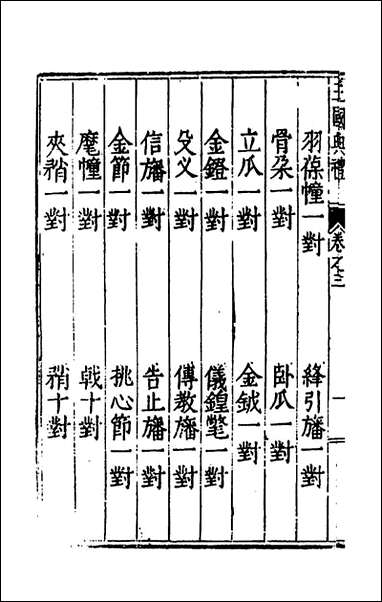 王國典禮 卷之三
羽葆幢一對 絳引旛一對
骨朶一對 卧瓜一對
立瓜一對 金鉞一對
金鐙一對 儀鍠氅一對
殳义一對 傳教旛一對
信旛一對 告止旛一對
金節一對 挑心節一對
麾幢一對 戟十對
夾矟一對 矟十對